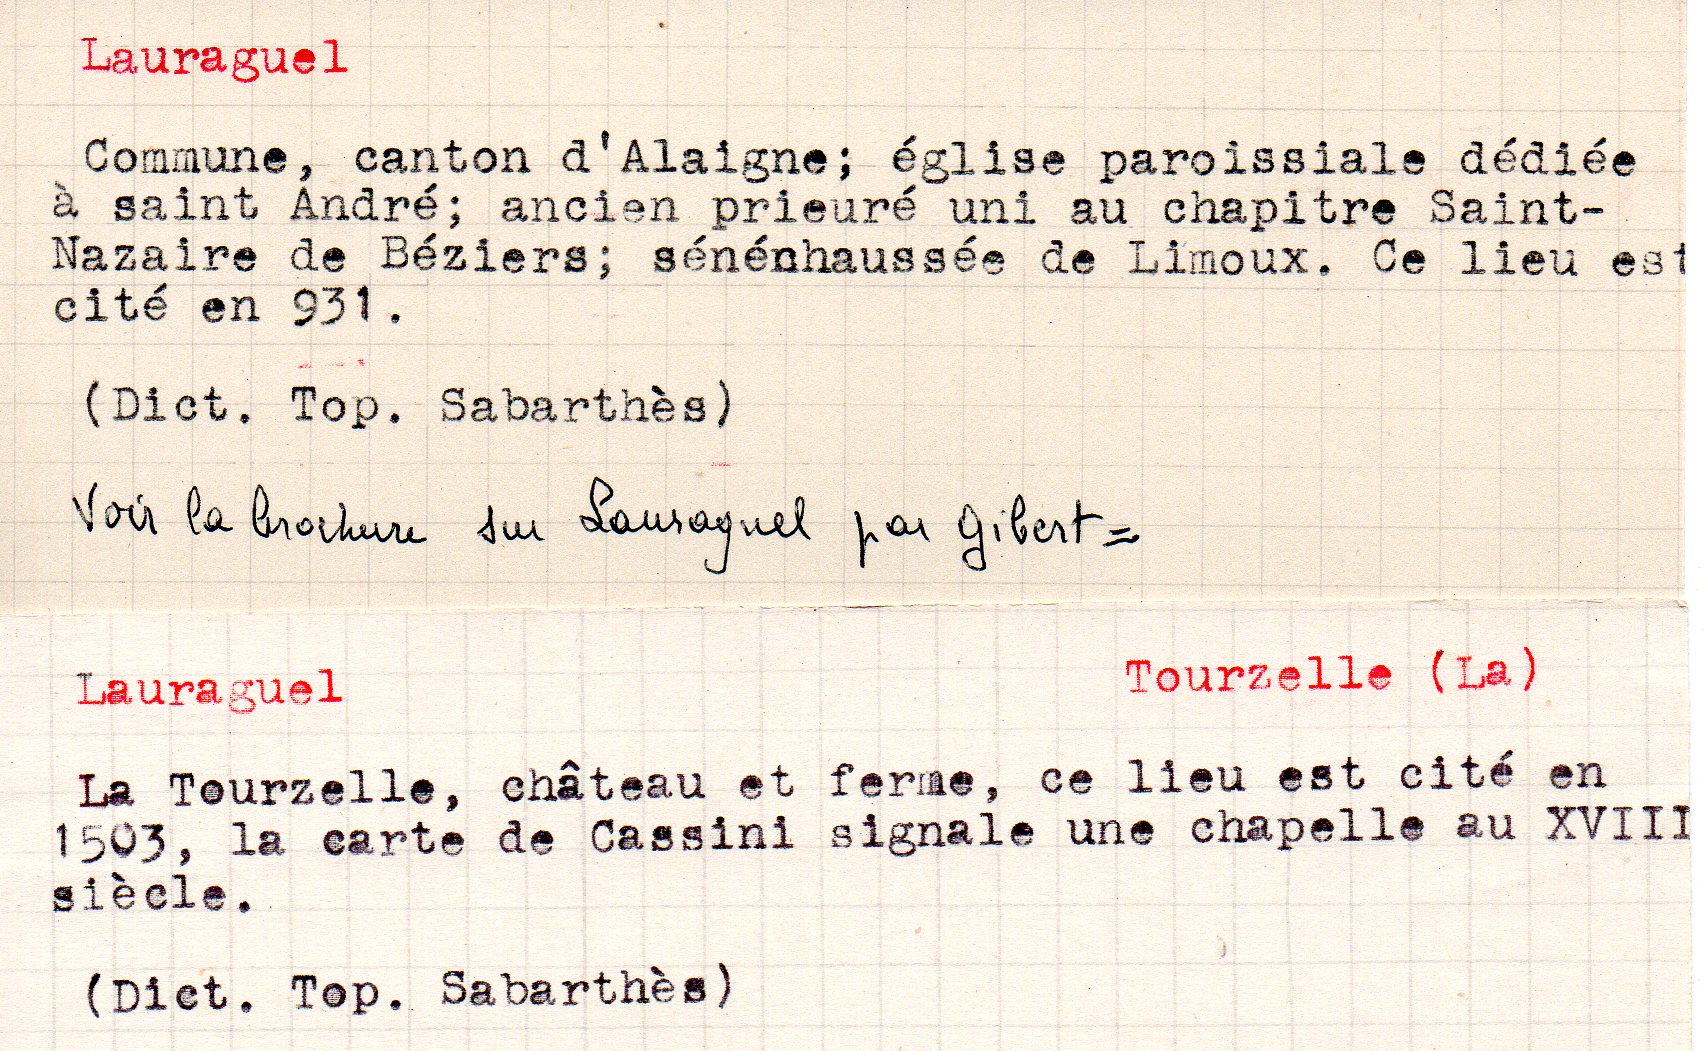 Lauraguel
Commune, canton d'Alaigne; église paroissiale dédiée
à saint André; ancien prieuré uni au chapitre Saint-
Nazaire de Béziers; sénénhaussée de Limoux. Ce lieu est
cité en 931.
(Dict. Top. Sabarthès)
Voir la brochure sur Lauraguel par Gibert =
Lauraguel Tourzelle (La)
La Tourzelle, château et ferme, ce lieu est cité en
1503, la carte de Cassini signale une chapelle au XVIII
siècle.
(Dict. Top. Sabarthès)